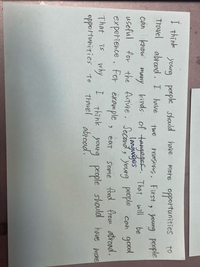 I think young people should have more opportunities to
travel abroad. I have two reasons. First, young people
can know many kind of languages. That will be
useful for the future. Second, young people can good
experience. For example, eat some food from abroad.
That is why I think young people should have more
opportunities to travel abroad.